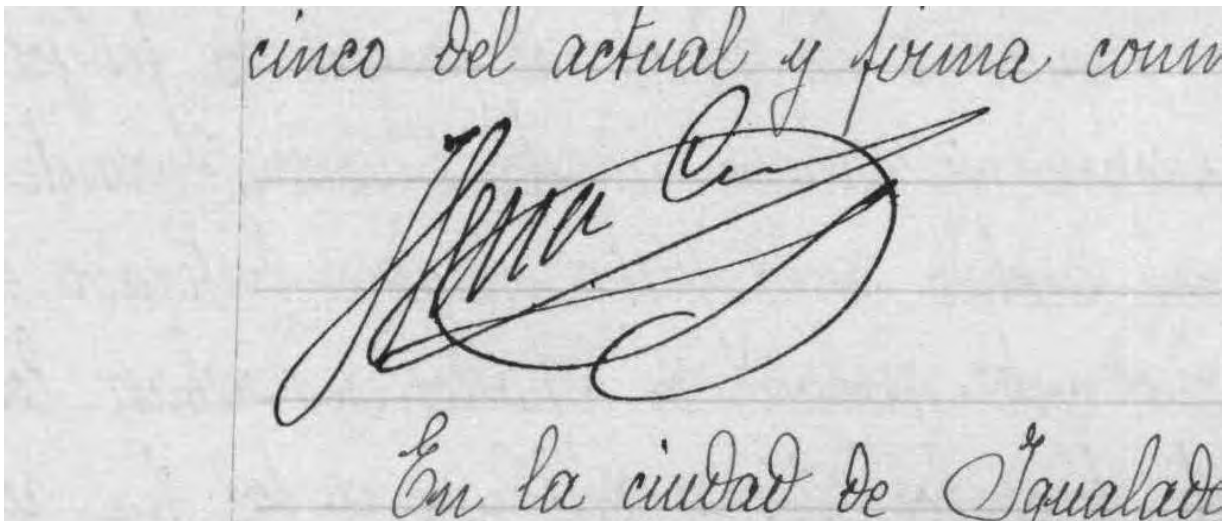 cinco del actual y firma conm
En la ciudad de Igualada